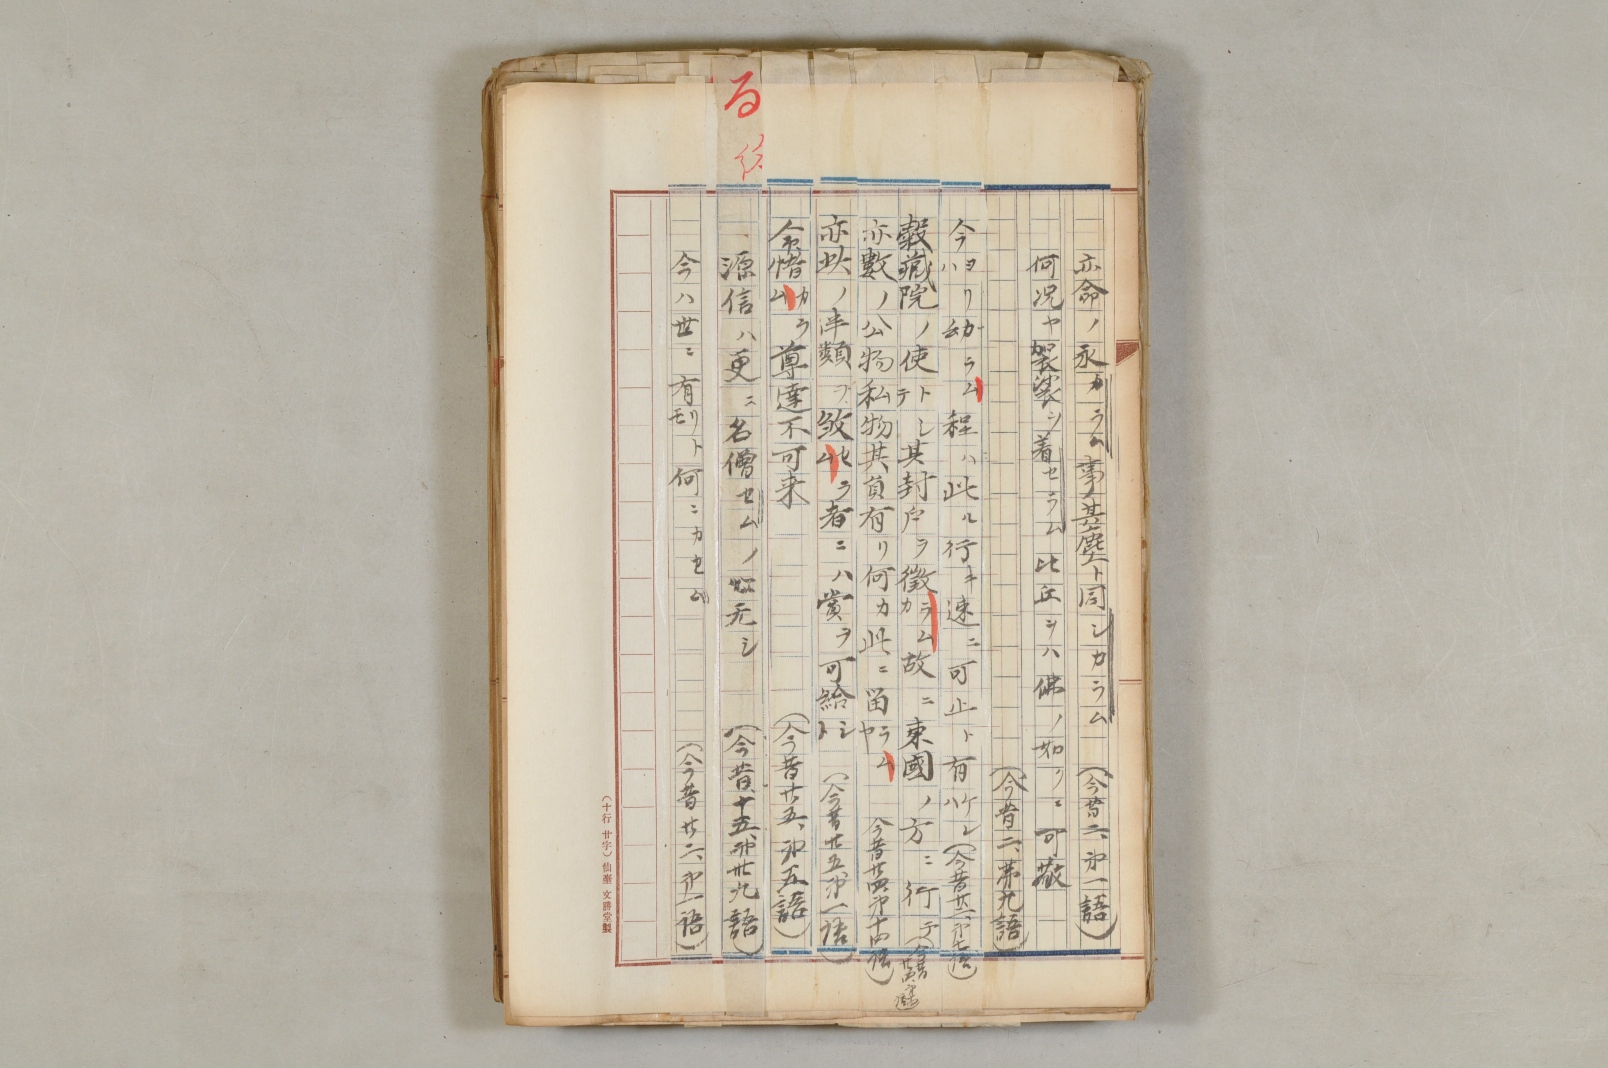 亦命ノ永カラム事ノ甚塵ト同シカラム（今昔二、第一語）
何況ヤ袈裟ヲ着セラム比丘ヲハ佛ノ如クニ可敬
（今昔二、第九語）
今ハヨリ幼ラム程ハ此ル行キ速ニ可止ト有ケレハ
穀蔵院ノ使トシテ其封戸ヲ徴カラム故ニ東國ノ方ニ行テ
亦數ノ公物私物其員有リ何カ此ニ留ヤラム（今昔廿四第十四語）
亦此ノ伴類ヲ殺セラム者ニハ賞ヲ可給シト（今昔廿五第一語）
命惜カラム尊達不可来（今昔廿五、第五語）
源信ハ更ニ名僧セムノ心无シ（今昔十五、第卅九語）
今ハ世ニ有リトモ何ニカセム（今昔廿六、第一語）
（十行 廿字）仙臺 文勝堂製